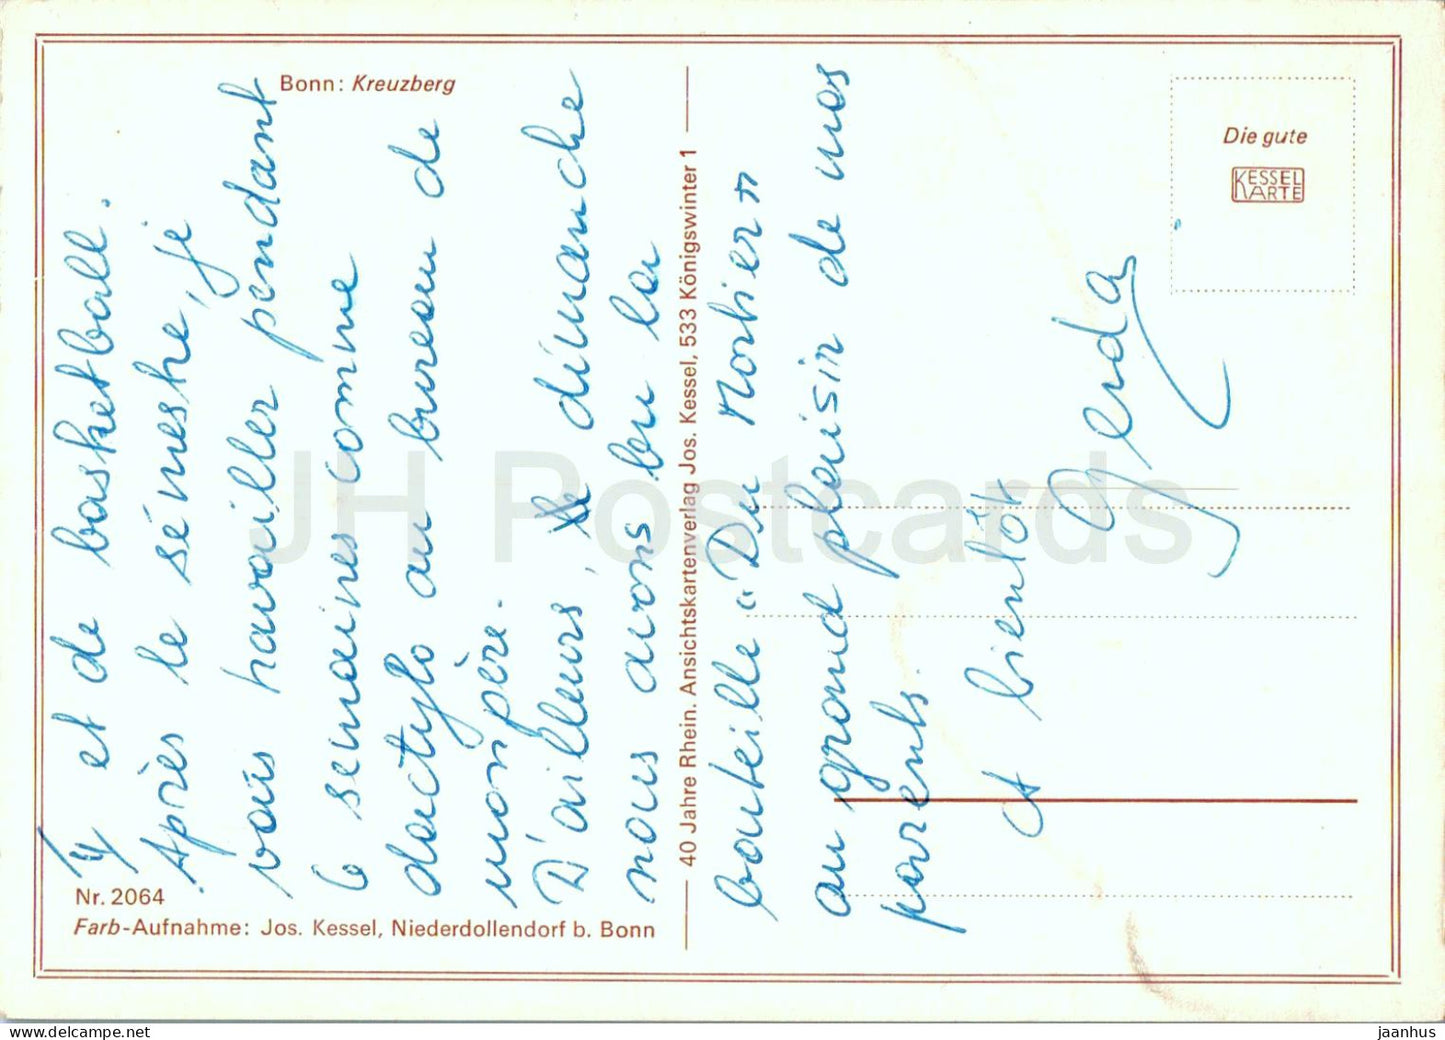 Bonn: Kreuzberg
Die gute
KESSEL
KARTE
4)
et de basketball.
Après le sémeshe, je
vais travailler pendant
6 semaines comme
dactylo au bureau de
mon père.
D'ailleurs, dimanche
nous avons bu la
bouteille „Du Mortier”
au grand plaisir de mes
parents.
A bientôt
Gerda
40 Jahre Rhein. Ansichtskartenverlag Jos. Kessel, 533 Königswinter 1
Nr. 2064
Farb-Aufnahme: Jos. Kessel, Niederdollendorf b. Bonn
JH Postcards
www.delcampe.net
jaanhus